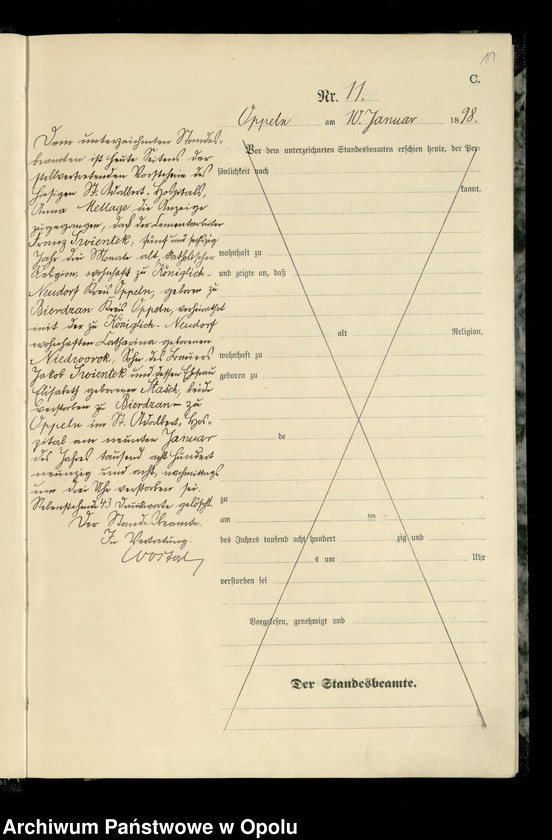 C.
Nr. 11.
Oppeln am 10. Januar 1898.
Dem unterzeichneten Standes-
beamten ist heute Seitens der
stellvertretenden Vorsteherin des
hiesigen St. Adalbert-Hospitals,
Anna Mellage die Anzeige
zugegangen, daß der Cementarbeiter
Franz Swientek, fünf und sechzig
Jahr drei Monate alt, katholischer
Religion, wohnhaft zu Königlich-
Neudorf Kreis Oppeln, geboren zu
Bierdzan Kreis Oppeln, verheirathet
mit der zu Königlich-Neudorf
wohnhaften Catharina geborenen
Niedworok, Sohn des Bauers
Jakob Swientek und dessen Ehefrau
Elisabeth geborenen Stasch, beide
verstorben zu Bierdzan – zu
Oppeln im St. Adalbert-Hos-
pital am neunten Januar
des Jahres tausend acht hundert
neunzig und acht, nachmittags
um drei Uhr verstorben sei.
Nebenstehend 43 Druckworte gelöscht.
Der Standesbeamte.
In Vertretung.
Vor dem unterzeichneten Standesbeamten erschien heute, der Per-
sönlichkeit nach
kannt,
wohnhaft zu
und zeigte an, daß
alt Religion,
wohnhaft zu
geboren zu
de
zu
am ten
des Jahres tausend acht hundert zig und
s um Uhr
verstorben sei
Vorgelesen, genehmigt und
Der Standesbeamte.
Archiwum Państwowe w Opolu